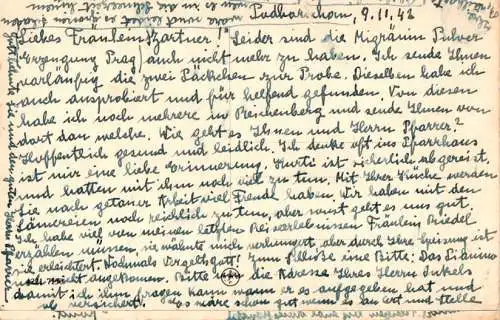 Podbořschan, 9.11.42
Liebes Fräulein Gartner! Leider sind die Migränin Pulver
Erzeugung Prag auch nicht mehr zu haben. Ich sende Ihnen
vorläufig die zwei Päckchen zur Probe. Dieselben habe ich
auch ausprobiert und für helfend gefunden. Von diesen
habe ich noch mehrere in Reichenberg und sende Ihnen von
dort dan welche. Wie geht es Ihnen und Herrn Pfarrer?
Hoffentlich gesund und leidlich. Ich denke oft ins Pfarrhaus
ist mir eine liebe Erinnerung. Kurti ist sicherlich abgereist,
und hatten mit ihm noch viel zu tun. Mit Ihrer Küche werden
Sie nach getaner Arbeit viel Freude haben. Wir haben mit den
Sämereien noch reichlich zu tun, aber sonst geht es uns gut.
Ich habe viel von meinen letzten Reiseerlebnissen Fräulein Riedel
erzählen müssen, sie wähnte mich verhungert, aber durch Ihre Speisung ist
sie erleichtert. Nochmals Vergeltsgott! Zum Schlusse eine Bitte: Das Pianino
noch nicht angekommen. Bitte um die Adresse Ihres Herrn Onkels
damit ich ihn fragen kann wann er es aufgegeben hat und
ob versichert. Es wäre schon gut wenn es an Ort und Stelle
Gott schütze Sie und den guten Herrn Pfarrer